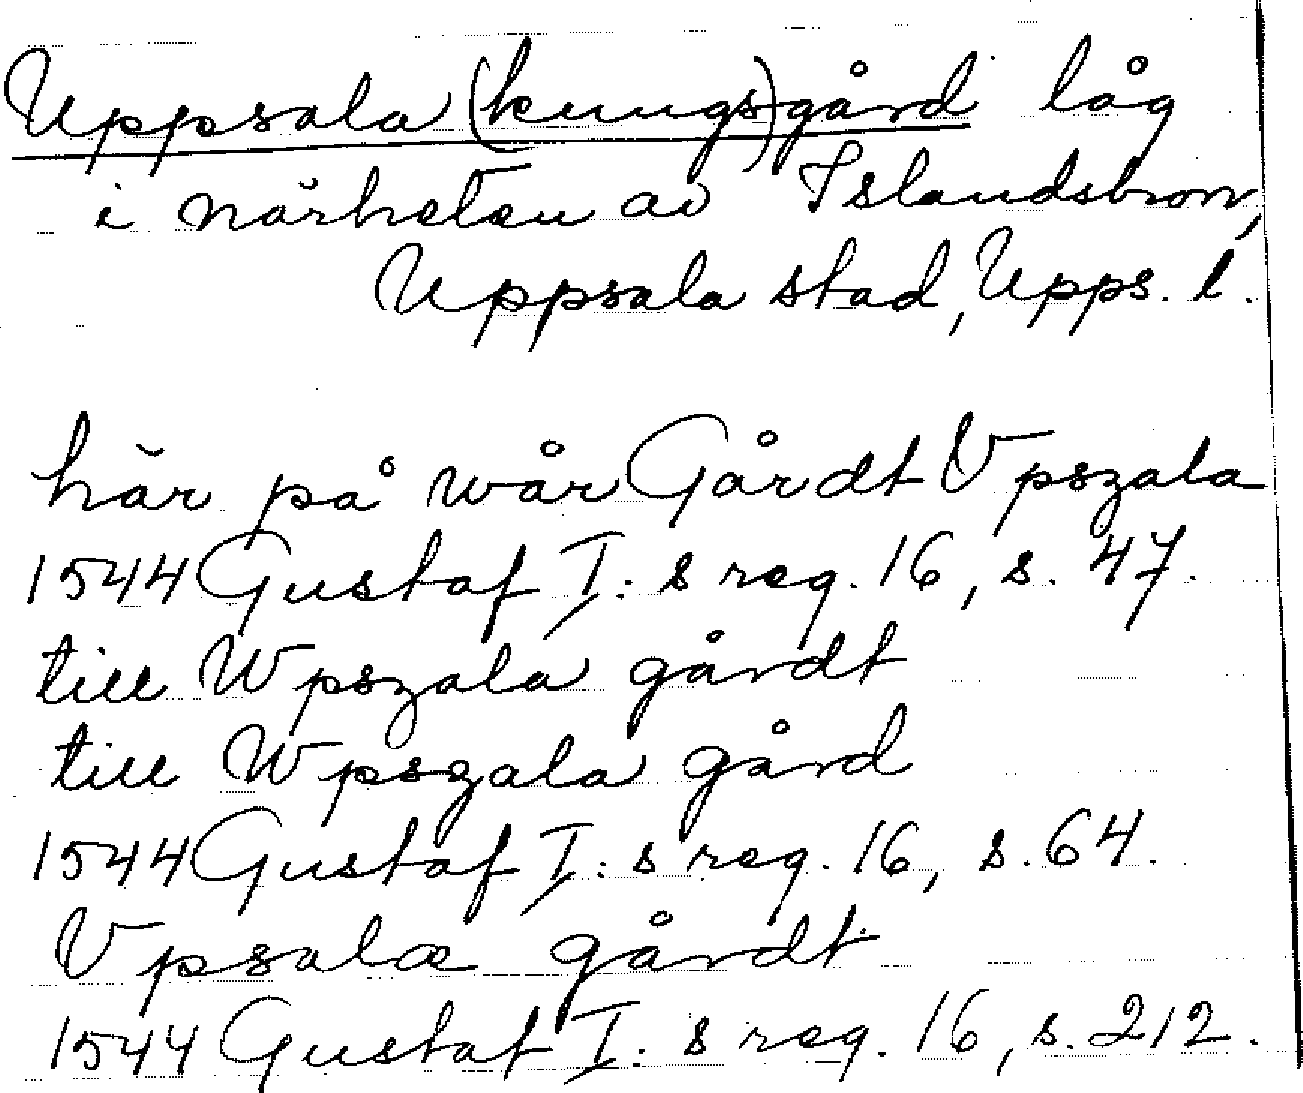 Uppsala (kungs)gård låg
i närheten av Islandsbron,
Uppsala stad, Upps. l.
här på wår Gårdt Vpszala
1544 Gustaf I:s reg. 16, s. 47.
till Wpszala gårdt
till Wpszala gård
1544 Gustaf I:s reg. 16, s. 64.
Vpsalæ gårdt
1544 Gustaf I:s reg. 16, s. 212.